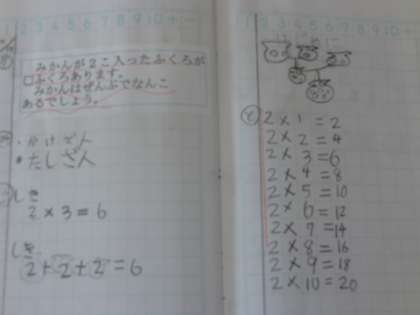 1 2 3 4 5 6 7 8 9 10 + -
みかんが2こ入ったふくろが
□ふくろあります。
みかんはぜんぶでなんこ
あるでしょう。
・かけざん
・たしざん
しき
2×3=6
しき
2+2+2=6
1 2 3 4 5 6 7 8 9 10 +
2×1=2
2×2=4
2×3=6
2×4=8
2×5=10
2×6=12
2×7=14
2×8=16
2×9=18
2×10=20